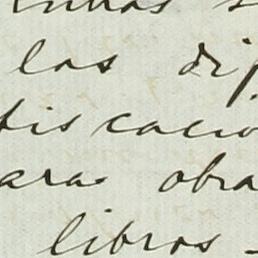 las dif
fiscacio
ara obra
libros -